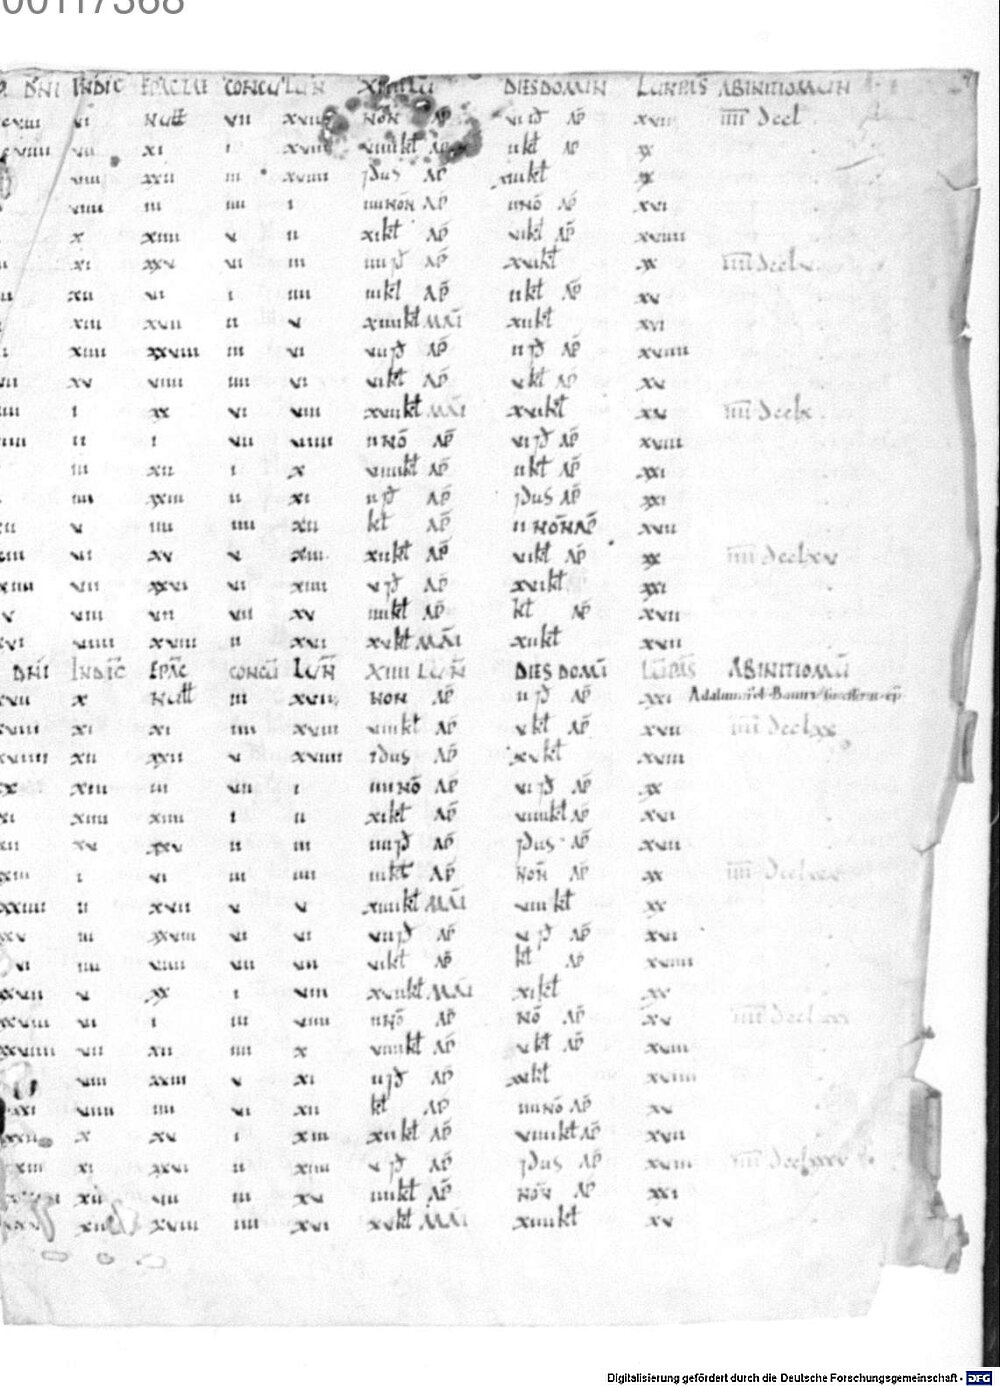 00117368
DNI INDIC EPACTAE CONCU LUN XIIII LU DIES DOMIN LUN PAS AB INITIO MUN
cxiii vi Null vii xvii NON AP vi id AP xvii iiii dccl
cxiiii vii xi i xviii viiii kł AP ii kł AP xx
viii xxii iii xviiii idus AP xiii kł xx
viiii iii iiii i iiii NON AP ii NO AP xvi
x xiiii v ii xi kł AP vi kł AP xviiii
xi xxv vi iii iiii id AP xvi kł xx iiii dcclv
xii vi i iiii iii kł AP ii kł AP xv
xiii xvii ii v xiiii kł MAI xii kł xvi
xiiii xxviii iii vi vii id AP ii id AP xviiii
xv viiii iiii vi vi kł AP v kł AP xv
i xx vi viii xvii kł MAI xvi kł xv iiii dcclx
ii i vii viiii ii NO AP vi id AP xviii
iii xii i x viiii kł AP ii kł AP xxi
iiii xxiii ii xi ii id AP idus AP xxi
v iiii iiii xii kł AP ii NON AP xvii
vi xv v xiii xii kł AP vi kł AP xx iiii dcclxv
vii xxvi vi xiiii v id AP xvi kł xxi
v viii vii vii xv iiii kł AP kł AP xvii
xvi viiii xviii ii xvi xv kł MAI xii kł xvii
DNI INDIC EPAC CONCU LUN XIIII LUN DIES DOMI LU PAS AB INITIO MU
xvii x Null iii xvii NON AP ii id AP xxi
xviii xi xi iiii xviii viiii kł AP v kł AP xvii iiii dcclxx
xviiii xii xxii v xviiii idus AP xv kł xviii
xx xiii iii vii i iiii NO AP vi id AP xx
xi xiiii xiiii i ii xi kł AP viiii kł AP xvi
xii xv xxv ii iii iiii id AP idus AP xvii
xiii i vi iii iiii iii kł AP NON AP xx iiii dcclxxv
xxiiii ii xvii v v xiiii kł MAI viii kł xx
xxv iii xxviii vi vi vii id AP v id AP xvi
vi iiii viiii vii vii vi kł AP kł AP xviiii
xxvii v xx i viii xvii kł MAI xi kł xv
xxviii vi i iii viiii ii NO AP NO AP xv iiii dcclxxx
xxviiii vii xii iiii x viiii kł AP v kł AP xviii
viii xxiii v xi ii id AP xvi kł xviiii
xxi viiii iiii vi xii kł AP iiii NO AP xv
xxii x xv i xiii xii kł AP viiii kł AP xvii
xiii xi xxvi ii xiiii v id AP idus AP xviii iiii dcclxxxv
xii vii iii xv iiii kł AP NON AP xxi
xviii iiii xvi xv kł MAI xiiii kł xv
Digitalisierung gefördert durch die Deutsche Forschungsgemeinschaft - DFG